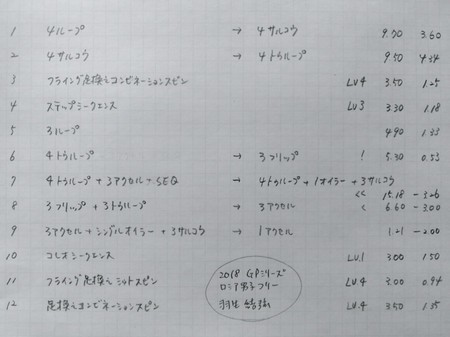 1 4ループ → 4サルコウ 9.70 3.60
2 4サルコウ → 4トウループ 9.50 4.34
3 フライング足換えコンビネーションスピン LV4 3.50 1.25
4 ステップシークエンス LV3 3.30 1.18
5 3ループ 4.90 1.33
6 4トウループ → 3フリップ ! 5.30 0.53
7 4トウループ+3アクセル+SEQ → 4トウループ+1オイラー+3サルコウ
<< 15.18 -3.26
8 3フリップ+3トウループ → 3アクセル < 6.60 -3.00
9 3アクセル+シングルオイラー+3サルコウ → 1アクセル 1.21 -2.00
10 コレオシークエンス LV.1 3.00 1.50
11 フライング足換えシットスピン LV.4 3.00 0.94
12 足換えコンビネーションスピン LV.4 3.50 1.35
2018 GPシリーズ
ロシア男子フリー
羽生結弦